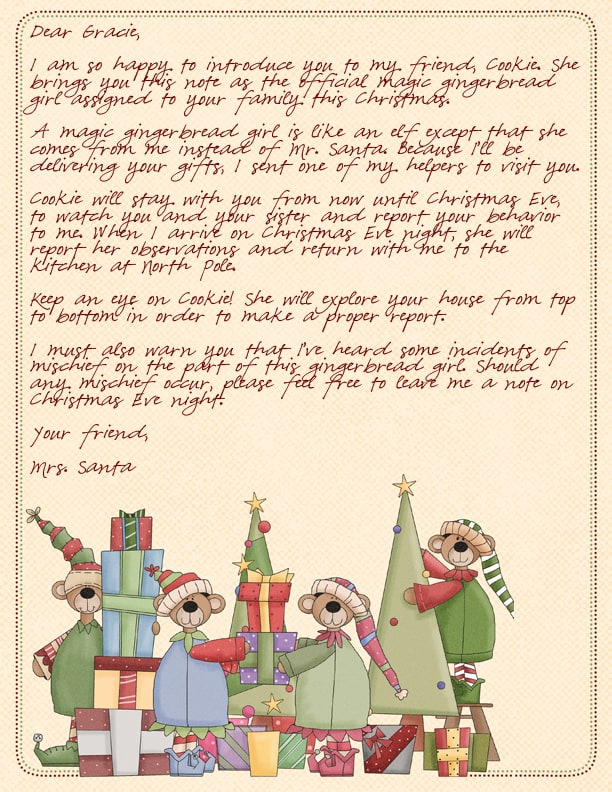 Dear Gracie,
I am so happy to introduce you to my friend, Cookie. She
brings you this note as the official magic gingerbread
girl assigned to your family this Christmas.
A magic gingerbread girl is like an elf except that she
comes from me instead of Mr. Santa. Because I'll be
delivering your gifts, I sent one of my helpers to visit you.
Cookie will stay with you from now until Christmas Eve,
to watch you and your sister and report your behavior
to me. When I arrive on Christmas Eve night, she will
report her observations and return with me to the
Kitchen at North Pole.
Keep an eye on Cookie! She will explore your house from top
to bottom in order to make a proper report.
I must also warn you that I've heard some incidents of
mischief on the part of this gingerbread girl. Should
any mischief occur, please feel free to leave me a note on
Christmas Eve night.
Your friend,
Mrs. Santa